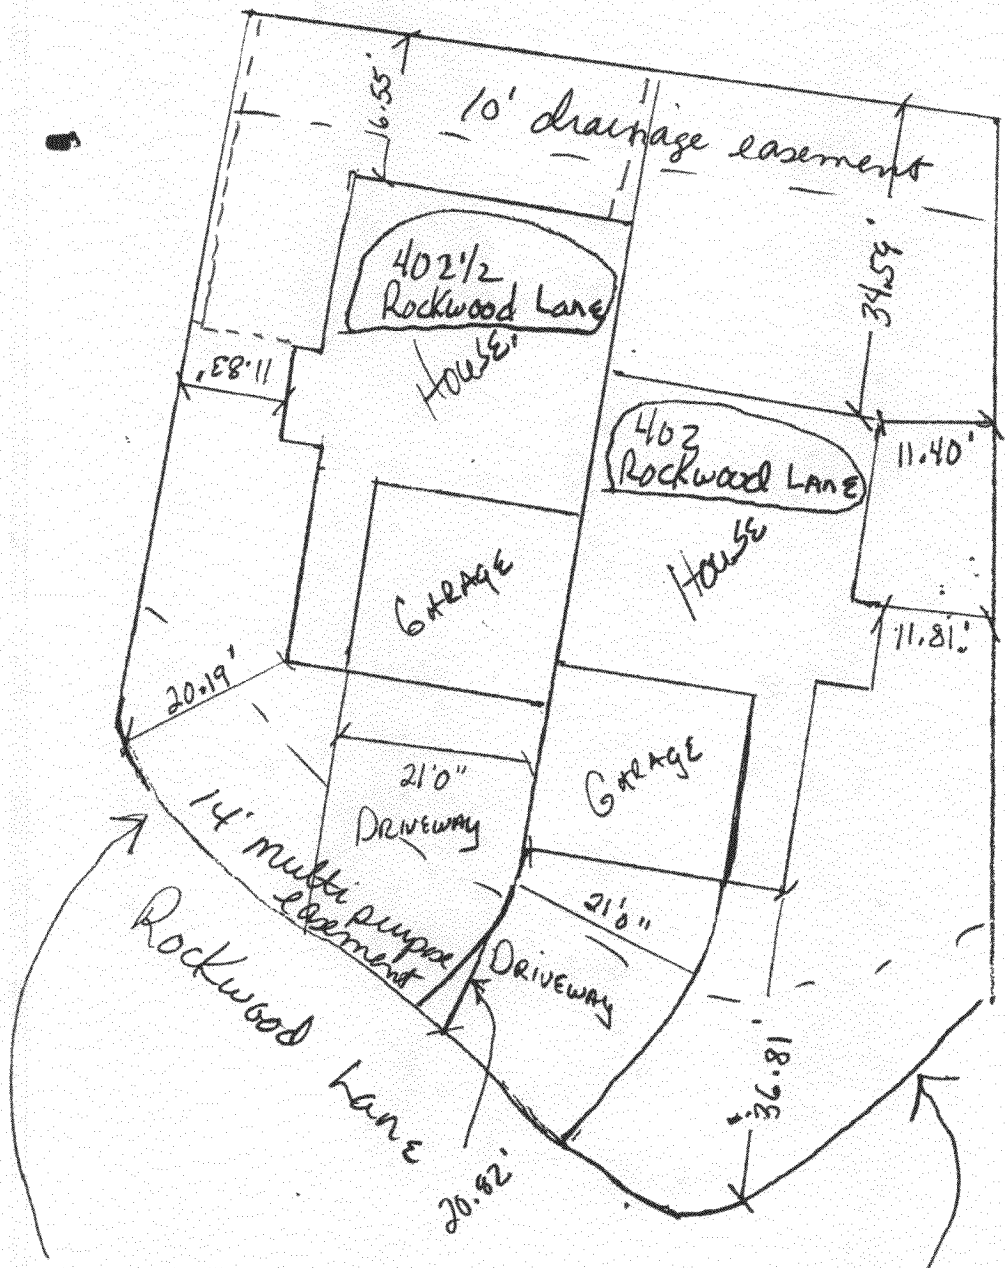 16.55'
10' drainage easement
402 1/2
Rockwood Lane
House
34.59'
11.83'
402
Rockwood Lane
11.40'
House
Garage
11.81'
20.19'
21'0"
Driveway
Garage
14' multi purpose
easement
21'0"
Driveway
Rockwood Lane
36.81'
20.82'